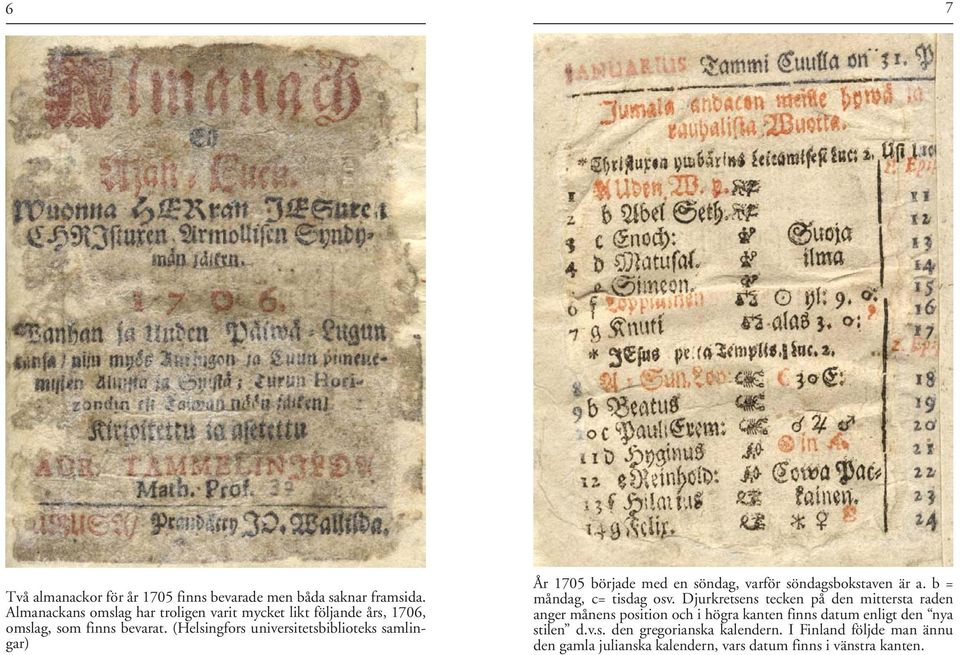 6
7
Almanach
Ajast-
Wuonna HERran JESuxen
CHRIsturen, Armollisen Syndy-
män jälken.
1706.
Wanhan ja Uuden Päiwä-Lugun
nijn myös Auringon ja Cuun pimene-
misten Alusta ja Turun Hori-
zondin Taiwan nään jälken/
Kirjoitettu ja asetettu
TAMMELINILDÄ
Math. Prof.
Prändätty JO. Wallilda.
JANUARIUS Tammi Cuulla on 31. P
Jumala andacon meille hywä ja
rauhalista Wuotta.
*Christuxen ymbärins leickamisest Luc: 2.
1 A Uden. W. p. 11
2 b Abel Seth. 12
3 c Enoch: Suoja 13
4 d Matusal. ilma 14
5 e Simeon. 15
6 f Loppiainen yl: 9. 0: 16
7 g Knuti alas 3. 0: 17
* JEsus Templis. Luc. 2.
8 A 1 Sun. Lop. C 3 0 E: 18
9 b Beatus 19
10 c Pauli Erem: ♂ ♃ ♂ 20
11 d Hyginus in 21
12 e Reinhold: Cowa Pac- 22
13 f Hilarius kainen. 23
14 g Felix. * ♀ 24
Två almanackor för år 1705 finns bevarade men båda saknar framsida.
Almanackans omslag har troligen varit mycket likt följande års, 1706,
omslag, som finns bevarat. (Helsingfors universitetsbiblioteks samlin-
gar)
År 1705 började med en söndag, varför söndagsbokstaven är a. b =
måndag, c= tisdag osv. Djurkretsens tecken på den mittersta raden
anger månens position och i högra kanten finns datum enligt den ”nya
stilen” d.v.s. den gregorianska kalendern. I Finland följde man ännu
den gamla julianska kalendern, vars datum finns i vänstra kanten.